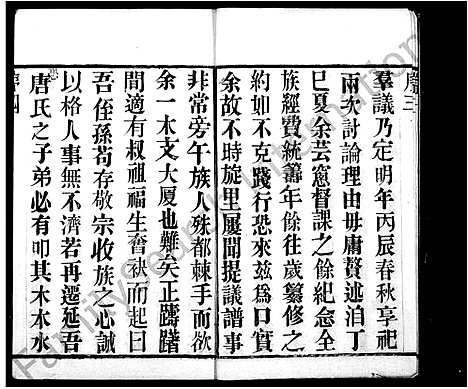 序三
羣議乃定明年丙辰春秋享祀
兩次討論理由毋庸贅述洎丁
巳夏余芸窻督課之餘紀念全
族經費統籌年餘往歲纂修之
約如不克踐行恐來玆爲口實
余故不時旋里屢聞提議譜事
非常旁午族人殊都棘手而欲
余一木支大厦也難矣正躊躇
間適有叔祖福生奮袂而起曰
吾侄孫苟存敬宗收族之心誠
以格人事無不濟若再遷延吾
唐氏之子弟必有叩其木本水
序四
FamilySearch International